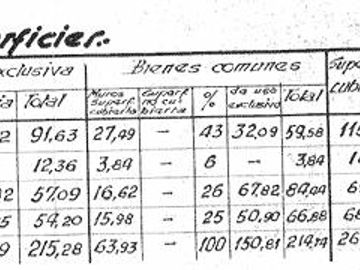 rficier.
xclusiva Bienes comunes Supe
ia Total Muros superf. cubierta Superf. no cubierta % de uso exclusivo Total cub
2 91,63 27,49 — 43 32,09 59,58 11
12,36 3,84 — 6 — 3,84 1
2 57,09 16,62 — 26 67,82 6
5 54,20 15,98 — 25 50,90 66,88 6
9 215,28 63,93 — 100 150,81 26